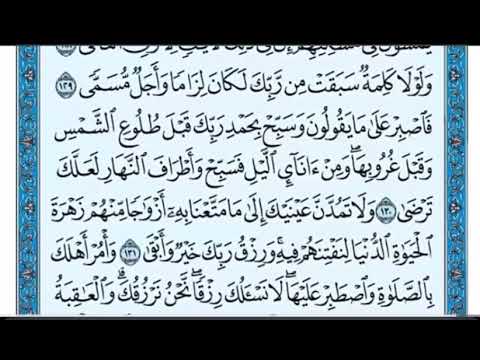 وَلَوْلَا كَلِمَةٌ سَبَقَتْ مِن رَّبِّكَ لَكَانَ لِزَامًا وَأَجَلٌ مُّسَمًّى ١٢٩
فَاصْبِرْ عَلَىٰ مَا يَقُولُونَ وَسَبِّحْ بِحَمْدِ رَبِّكَ قَبْلَ طُلُوعِ الشَّمْسِ
وَقَبْلَ غُرُوبِهَا ۖ وَمِنْ ءَانَآئِ الَّيْلِ فَسَبِّحْ وَأَطْرَافَ النَّهَارِ لَعَلَّكَ
تَرْضَىٰ ١٣٠ وَلَا تَمُدَّنَّ عَيْنَيْكَ إِلَىٰ مَا مَتَّعْنَا بِهِۦٓ أَزْوَٰجًا مِّنْهُمْ زَهْرَةَ
الْحَيَوٰةِ الدُّنْيَا لِنَفْتِنَهُمْ فِيهِ ۚ وَرِزْقُ رَبِّكَ خَيْرٌ وَأَبْقَىٰ ١٣١ وَأْمُرْ أَهْلَكَ
بِالصَّلَوٰةِ وَاصْطَبِرْ عَلَيْهَا ۖ لَا نَسْـَٔلُكَ رِزْقًا ۖ نَّحْنُ نَرْزُقُكَ ۗ وَالْعَٰقِبَةُ